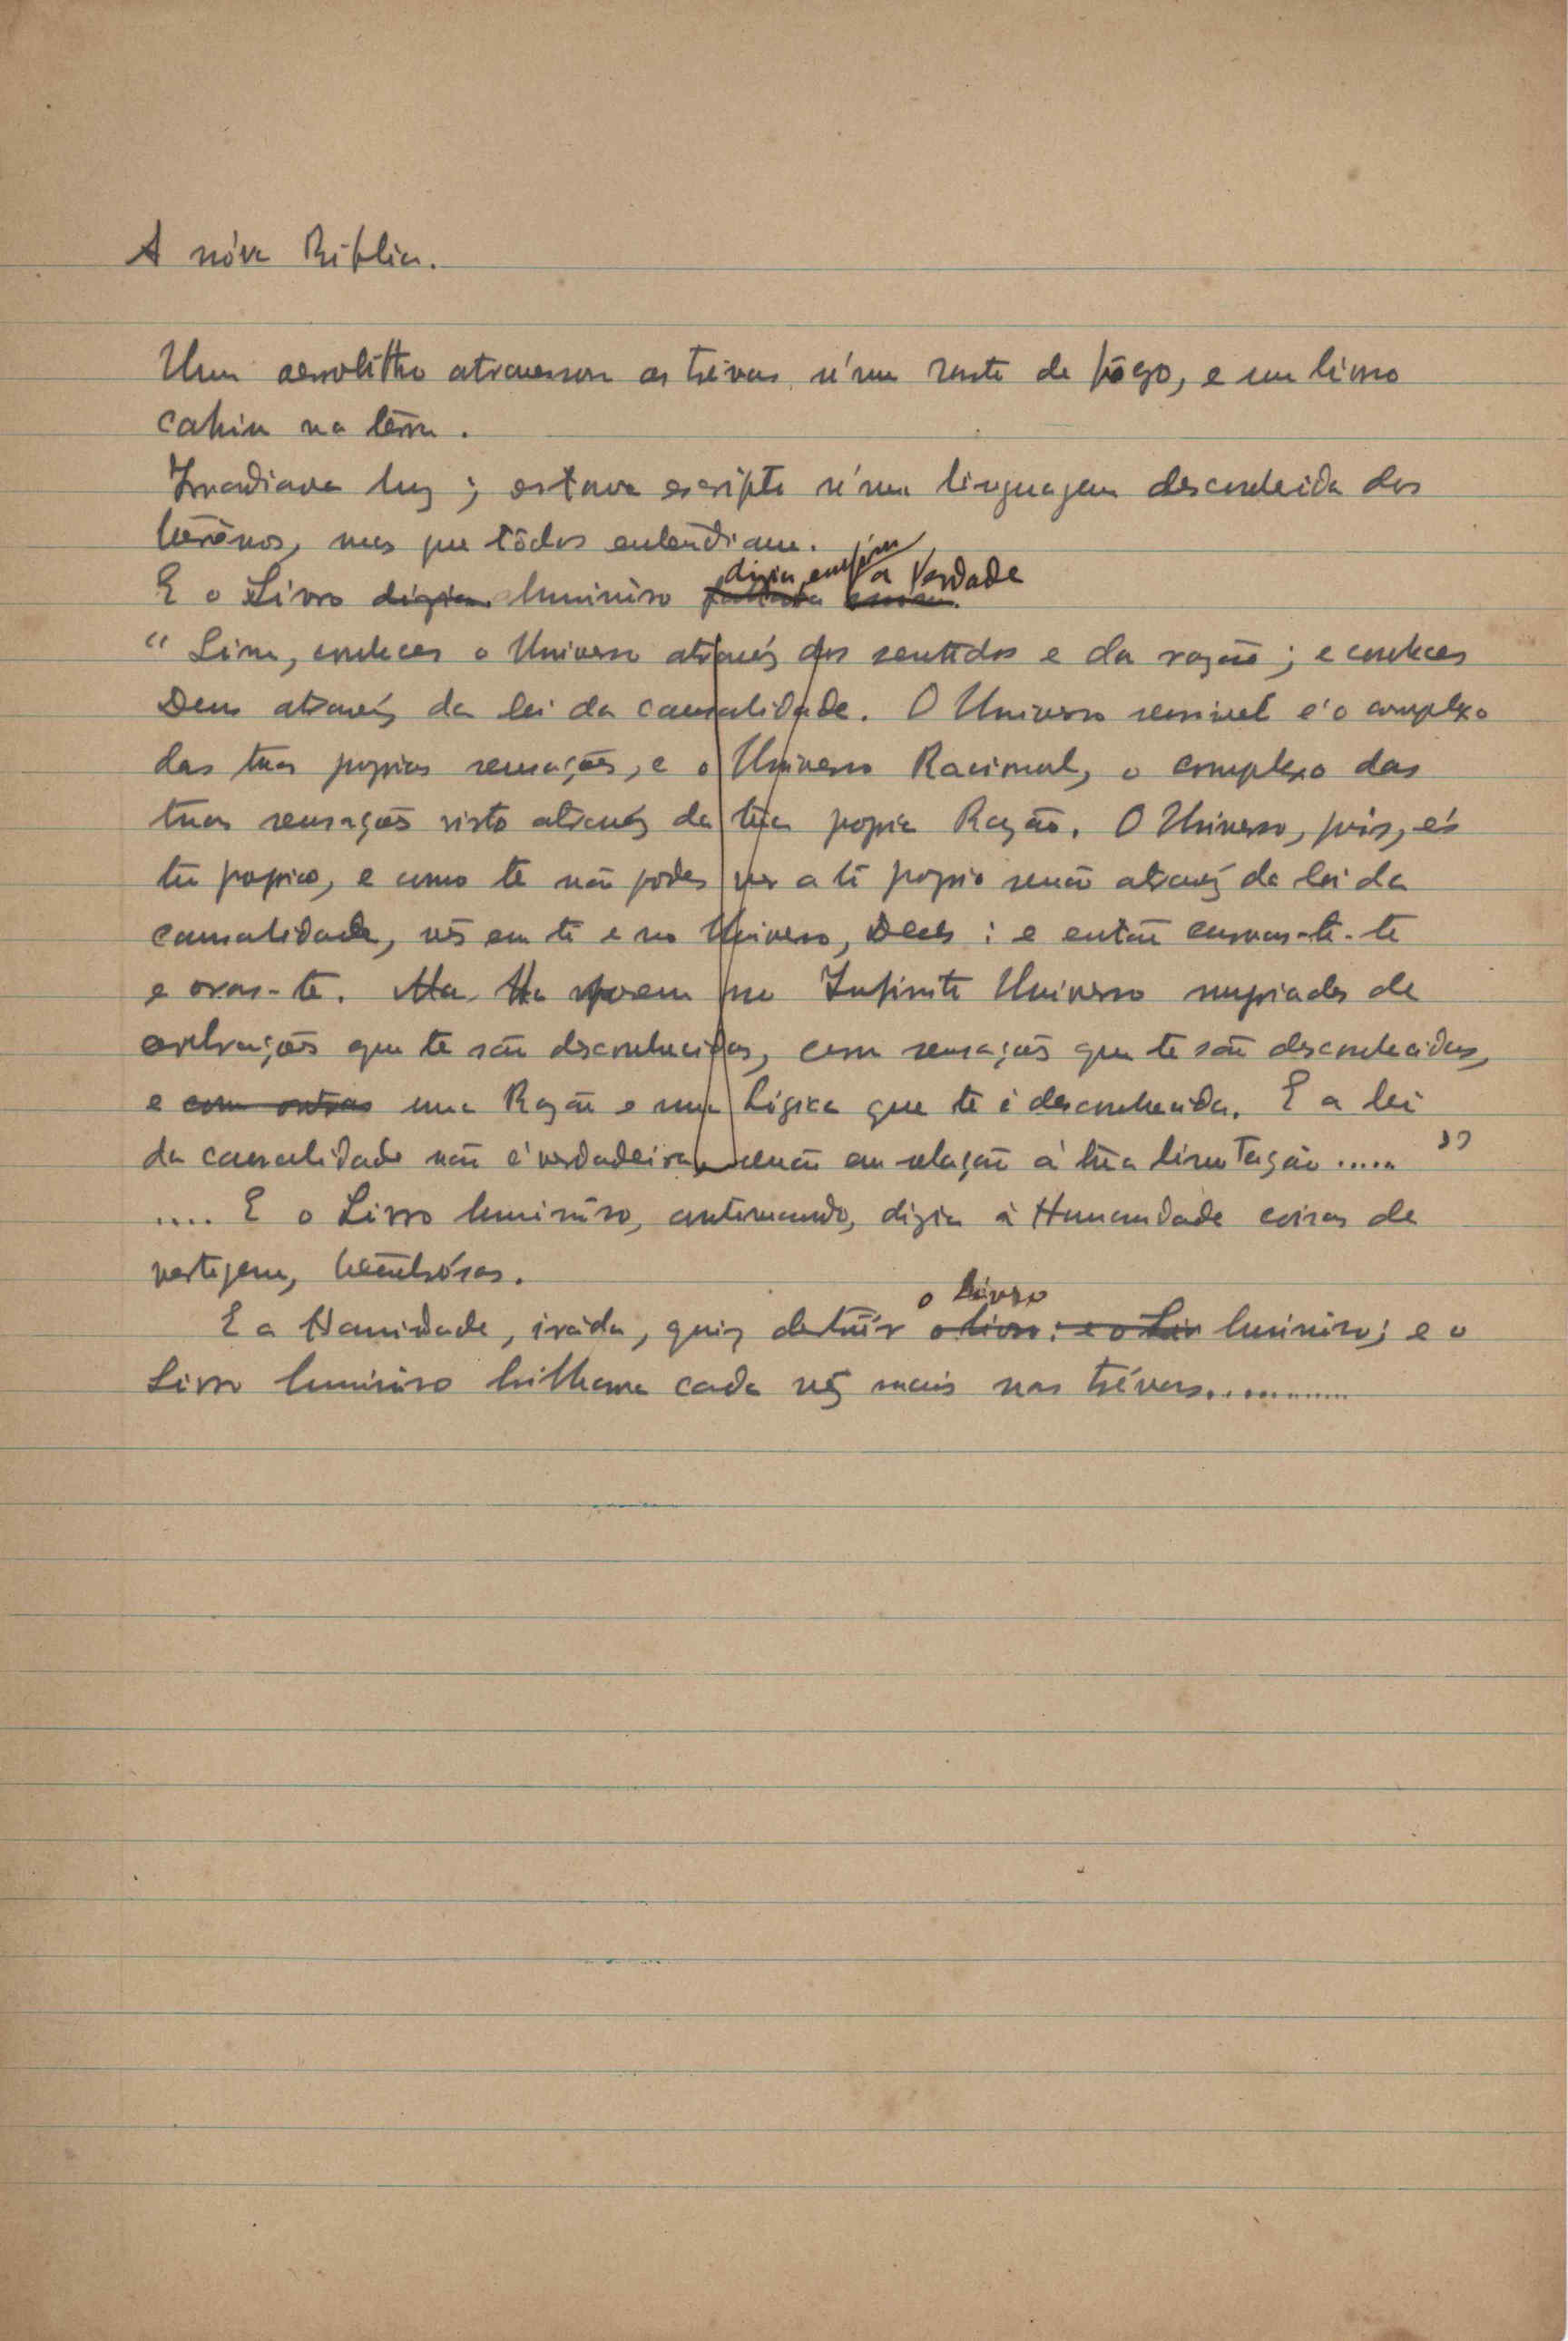 A nóva Biblia.
Um aerolitho atravessou as trévas n'um rasto de fôgo, e um livro
cahiu na térra.
Irradiava luz; estava escripto n'uma linguagem desconhecida dos
terrênos, mas que tôdos entendiam.
dizia, emfim a Verdade
E o Livro dizia luminôso fallava
" Sim, conheces o Universo através dos sentidos e da razão; e conheces
Deus através da lei da causalidade. O Universo sensivel é o complexo
das tuas proprias sensações, e o Universo Racional, o complexo das
tuas sensações visto através da túa propia Razão. O Universo, pois, és
tú proprio, e como te não podes ver a ti proprio senão através da lei da
causalidade, vês em ti e no Universo, Deus : e então curvas-te-te
e oras-te. Ma Ha porem no Infinito Universo myriades de
que te são desconhecidas, com sensações que te são desconhecidas,
e com outras uma Razão e uma Lógica que te é desconhecida. E a lei
da causalidade não é verdadeira senão em relação á túa limitação ..... "
.... E o Livro luminôso, continuando, dizia á Humanidade coisas de
vertigem, tenebrósas.
o Livro
E a Humanidade, iráda, quiz destruír o livro: e o Liv luminôso; e o
Livro luminôso brilhava cada vêz mais nas trévas............